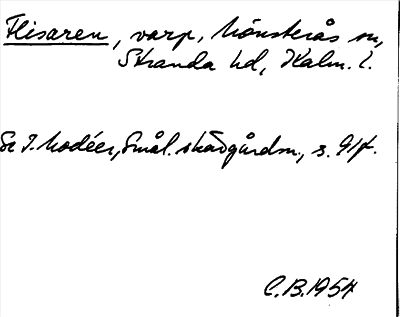 Flisaren, varp, Mönsterås sn,
Stranda hd, Kalm. l.
Se I. Modéer, Smål. skärgårdsn., s. 91f.
C.B. 1954